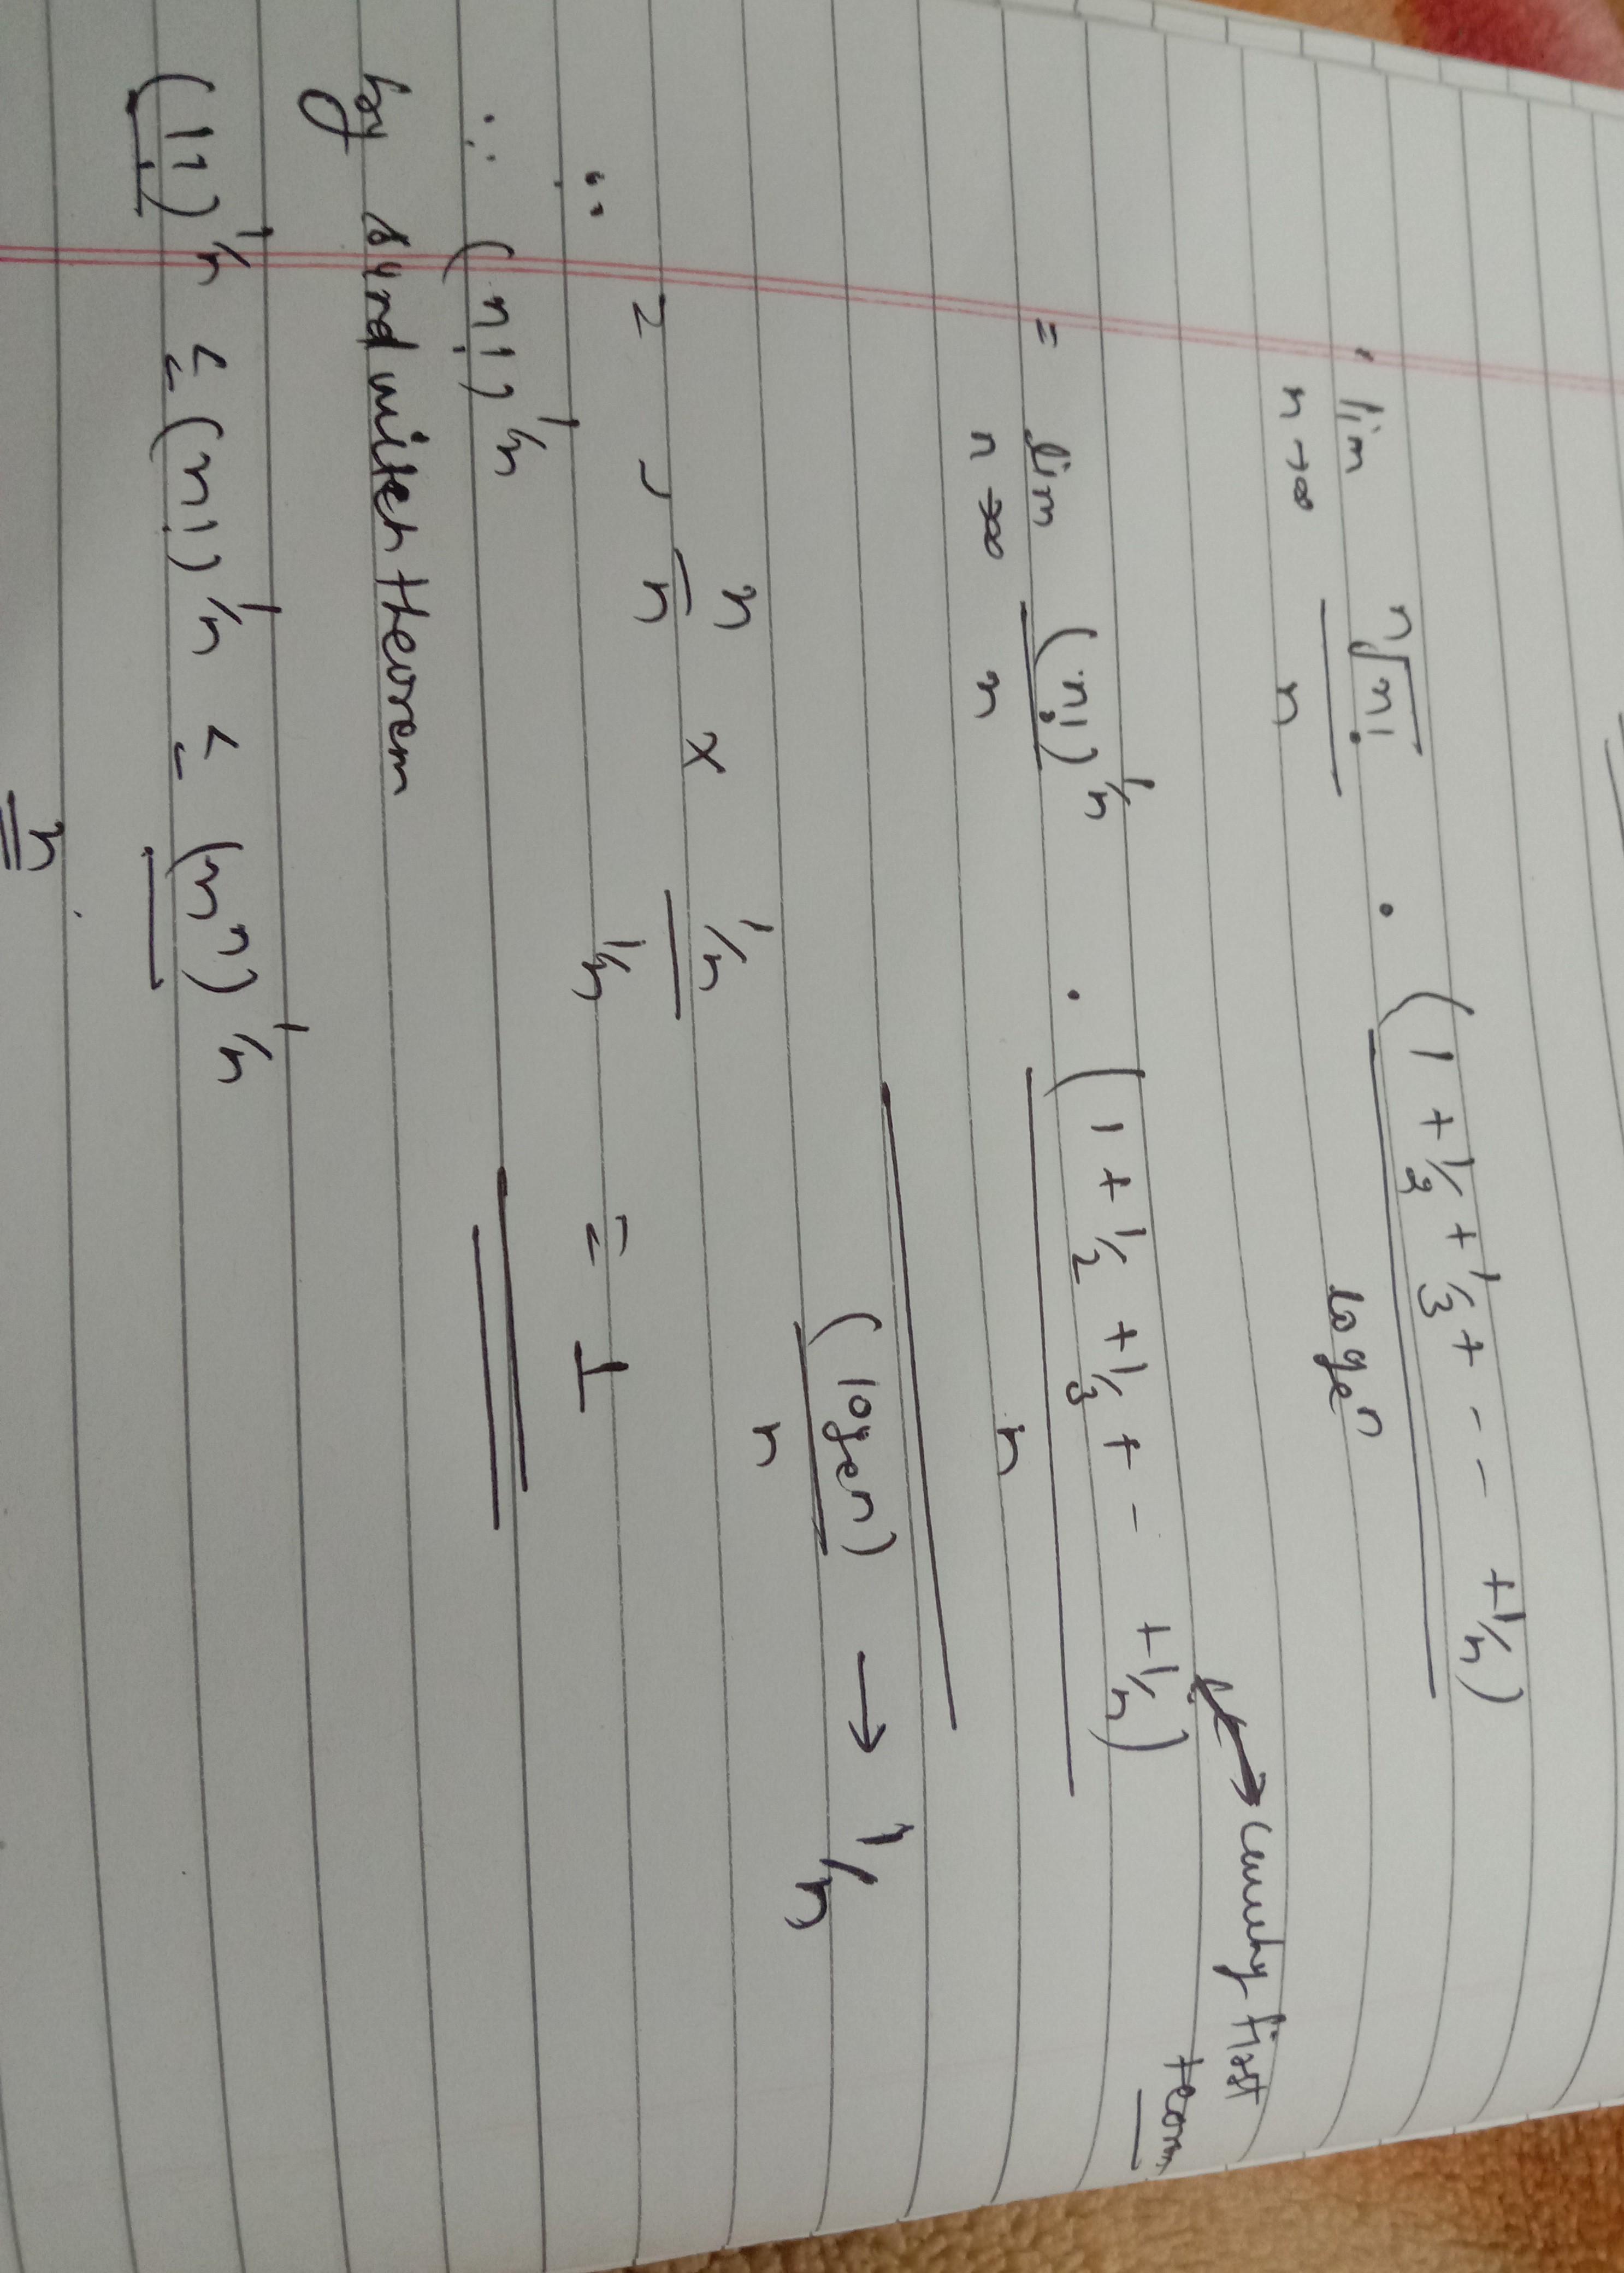 lim n→∞ ⁿ√n! / n . (1 + 1/2 + 1/3 + - - + 1/n) / logₑn
= lim n→∞ (n!)^1/n / n . (1 + 1/2 + 1/3 + - - + 1/n) / n → cauchy first teorm
(logₑn) / n → 1/n
= n/n × 1/n / 1/n = 1
∵ (n!)^1/n
by sandwitch theorem
(1!)^1/n ≤ (n!)^1/n ≤ (n^n)^1/n
n